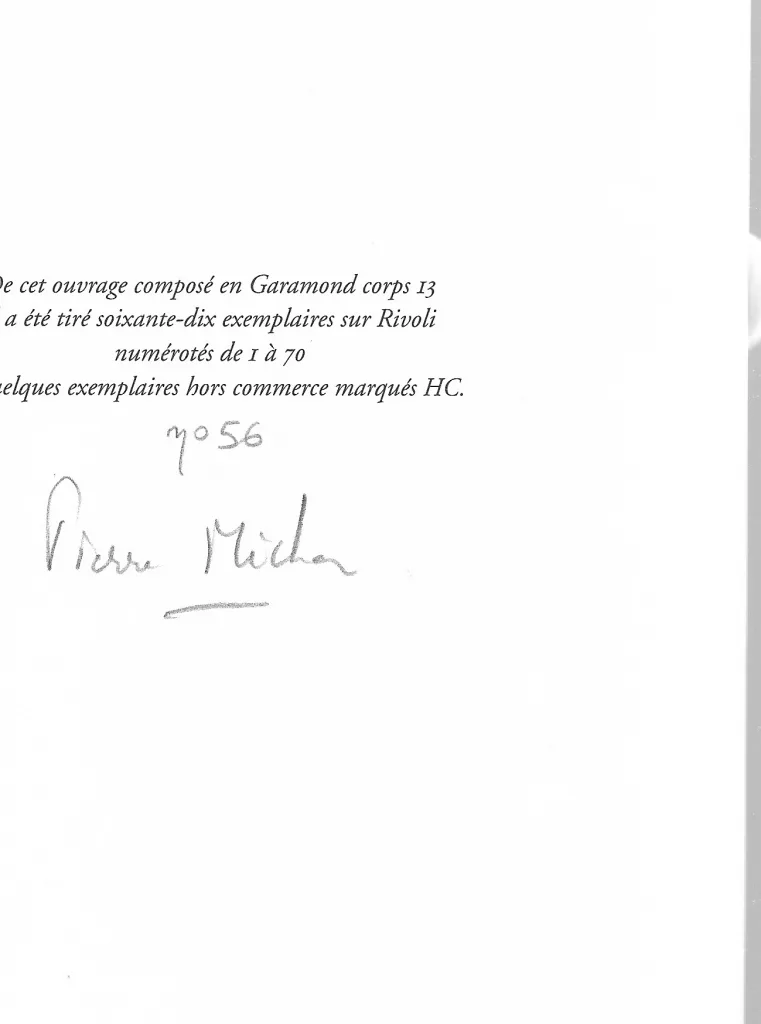 De cet ouvrage composé en Garamond corps 13
a été tiré soixante-dix exemplaires sur Rivoli
numérotés de 1 à 70
quelques exemplaires hors commerce marqués HC.
no 56
Pierre Michon